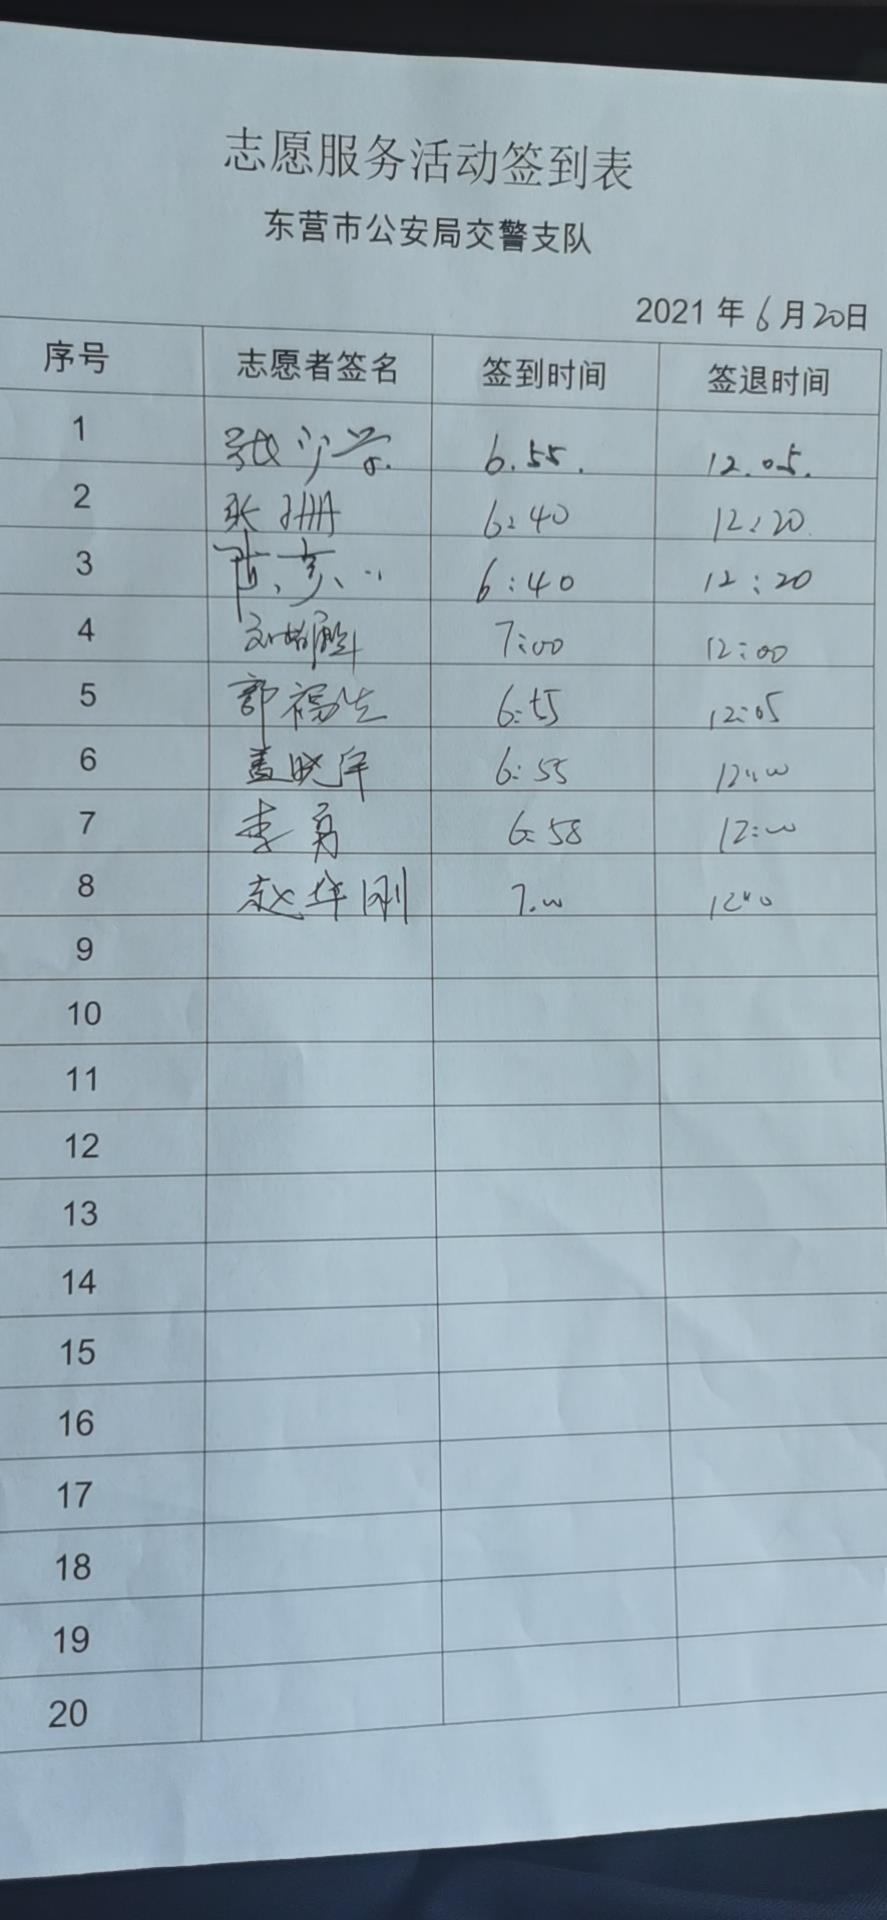 志愿服务活动签到表
东营市公安局交警支队
2021 年 6 月 20 日
序号 志愿者签名 签到时间 签退时间
1 张 6.55. 12.05.
2 张珊 6:40 12:20
3 6:40 12:20
4 7:00 12:00
5 郭福生 6:55 12:05
6 盖晓军 6:55 12:00
7 李勇 6:58 12:00
8 赵华刚 7.00 12:00
9
10
11
12
13
14
15
16
17
18
19
20